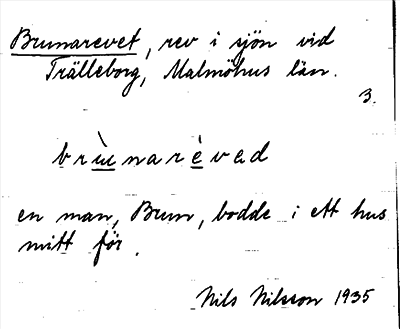 Brunarevet, rev i sjön vid
Trälleborg, Malmöhus län.
3.
brùnarèvad
en man, Brun, bodde i ett hus
mitt för.
Nils Nilsson 1935